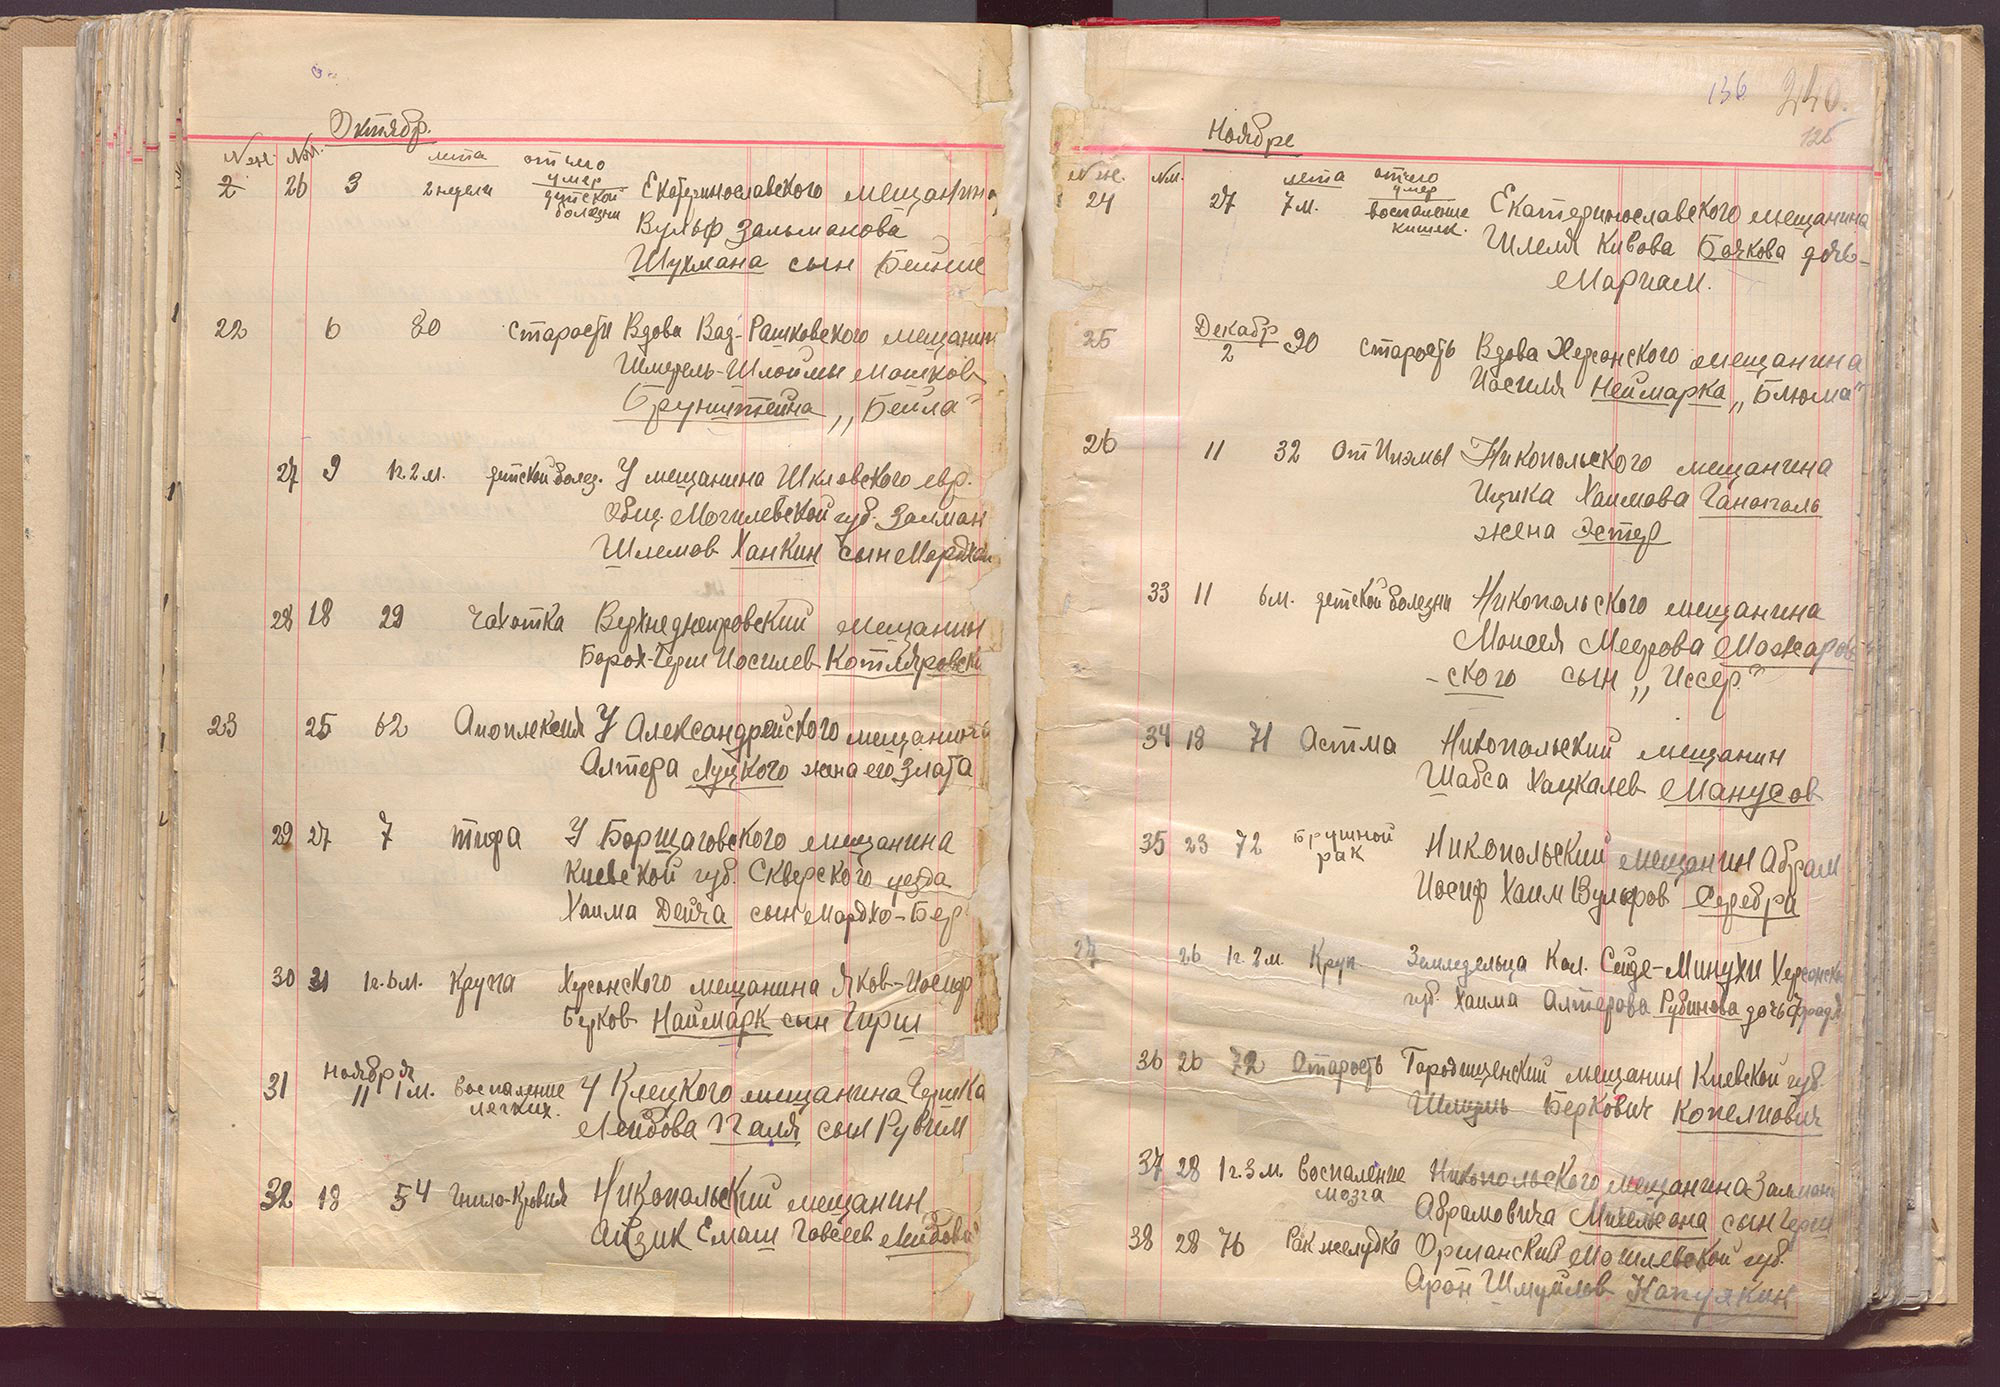 Октябр.
№ ж. № м. лета отчего умер
2 26 3 2 недели детской болезни Екатеринославского мещанина
Вульф Зальманова
Шухмана сын Бейнис
22 6 80 старости Вдова Вад-Рашковского мещанин
Шмерель-Шлоймы Мошков
Грунштейна „Бейла"
27 9 1г.2м. детской болез. У мещанина Шкловского евр.
общ. Могилевской губ. Залман
Шлемов Ханкин сын Мордхай
28 18 29 чахотка Верхнеднепровский мещанин
Борох-Герш Иосилев Котляровски
23 25 62 Апоплексия У Александрейского мещанина
Алтера Луцкого жена его Злата
29 27 7 тифа У Борщаговского мещанина
Киевской губ. Сквирского уезда
Хаима Дейча сын Мордхо-Бер
30 31 1г.6м. Крупа Херсонского мещанина Яков-Иосиф
Берков Наймарк сын Гирш
Ноября
31 11 1м. воспаление легких. У Клецкого мещанина Гершка
Лейбова Паля сын Рувим
32 18 54 Гнило-Кровия Никопольский мещанин
Айзик Емаш Говсеев Лейбови
136 240.
126
Ноябре
№ ж. № м. лета отчего умер
24 27 7м. воспаление кишек. Екатеринославского мещанина
Шлемя Кивова Бочкова дочь
Мариам.
25 Декабр 2 90 старость Вдова Херсонского мещанина
Иосиля Неймарка „Блюма"
26 11 32 От Инэмы Никопольского мещанина
Ицика Хаимова Ганополь
жена Эстер
33 11 6м. детской болезни Никопольского мещанина
Моисея Меерова Можаров-
-ского сын „Иссер"
34 18 71 Астма Никопольский мещанин
Шабса Хацкалев Манусов
35 23 72 Брушной рак Никопольский мещанин Абрам
Иосиф Хаим Вульфов Серебри
27 26 1г.2м. Круп Земледельца Кол. Сейде-Минухи Херсонской
губ. Хаима Алтерова Рубинова дочь Фрадл
36 26 72 Старость Городищенский мещанин Киевской губ.
Шмуль Беркович Копелиович
37 28 1г.3м. Воспаление мозга Никопольского мещанина Залмана
Абрамовича Михельсона сын Герш
38 28 76 Рак желудка Оршанский Могилевской губ.
Арон Шмуйлов Капуякин